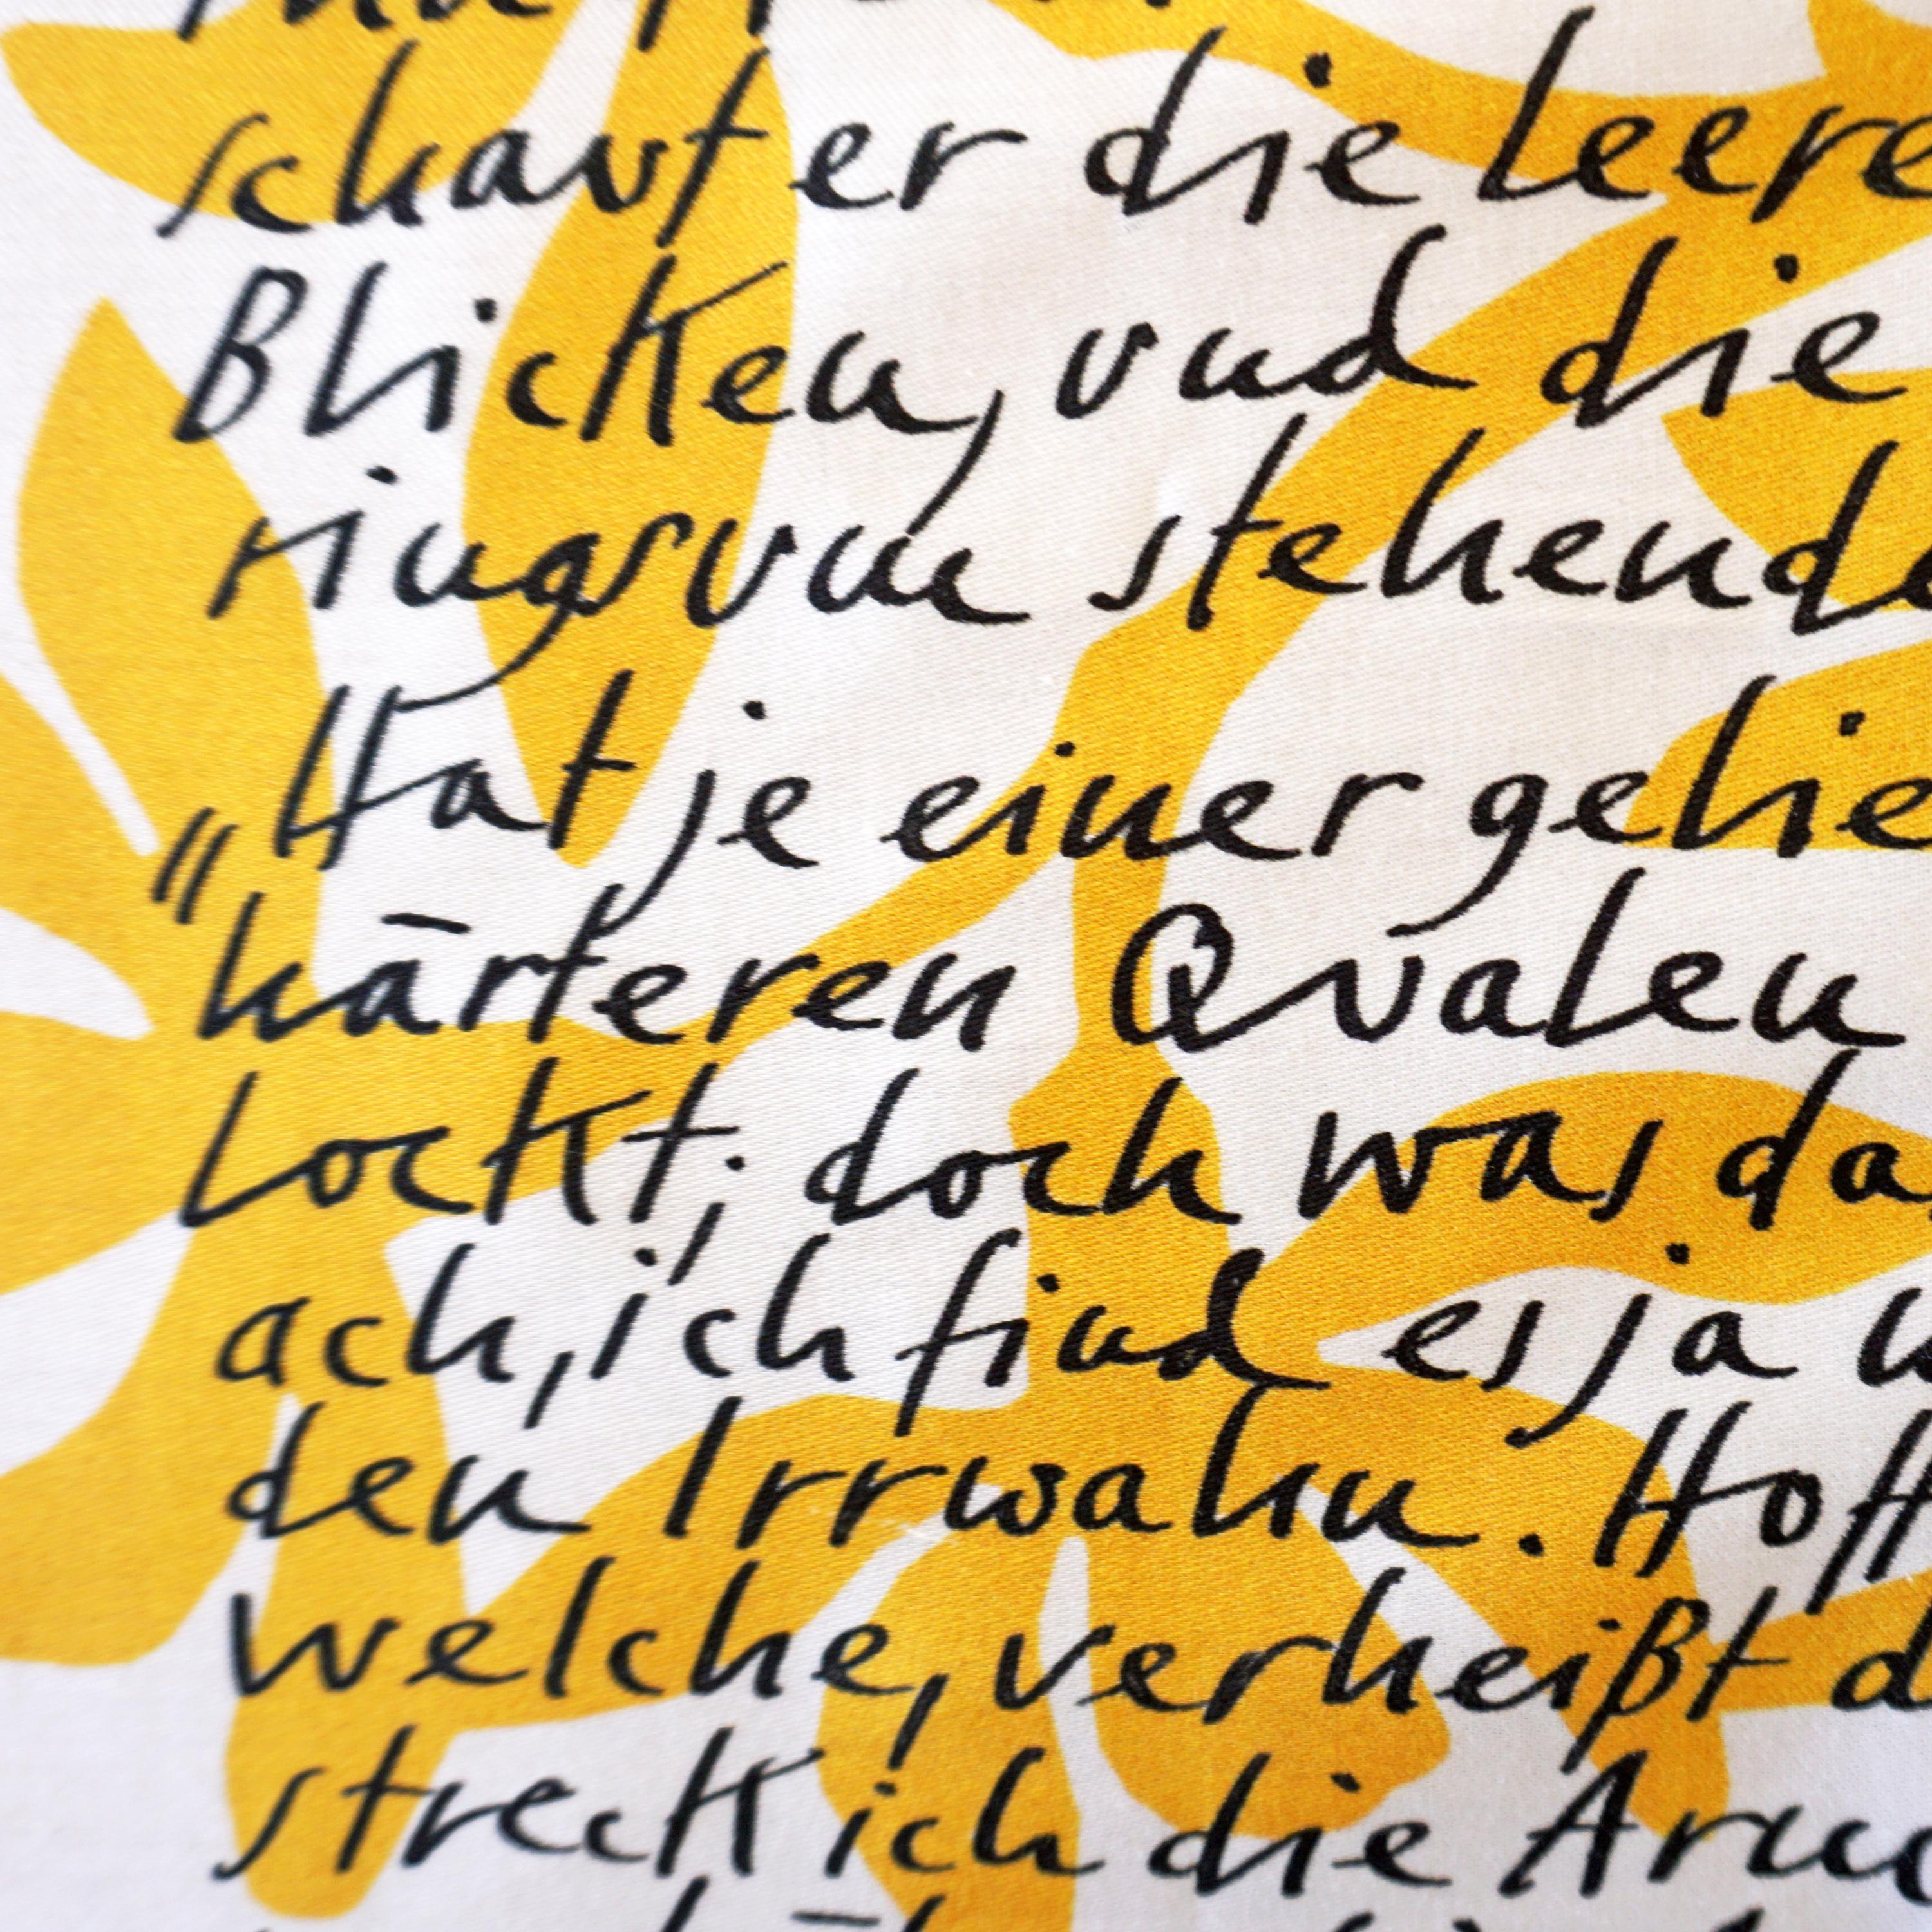 schaut er die leere
Blicken, und die
ringsum stehende
„Hat je einer gelie
härteren Qualen
lockt; doch was da
ach, ich find es ja
den Irrwahn. Hoff
welche, verheißt d
streck ich die Arm